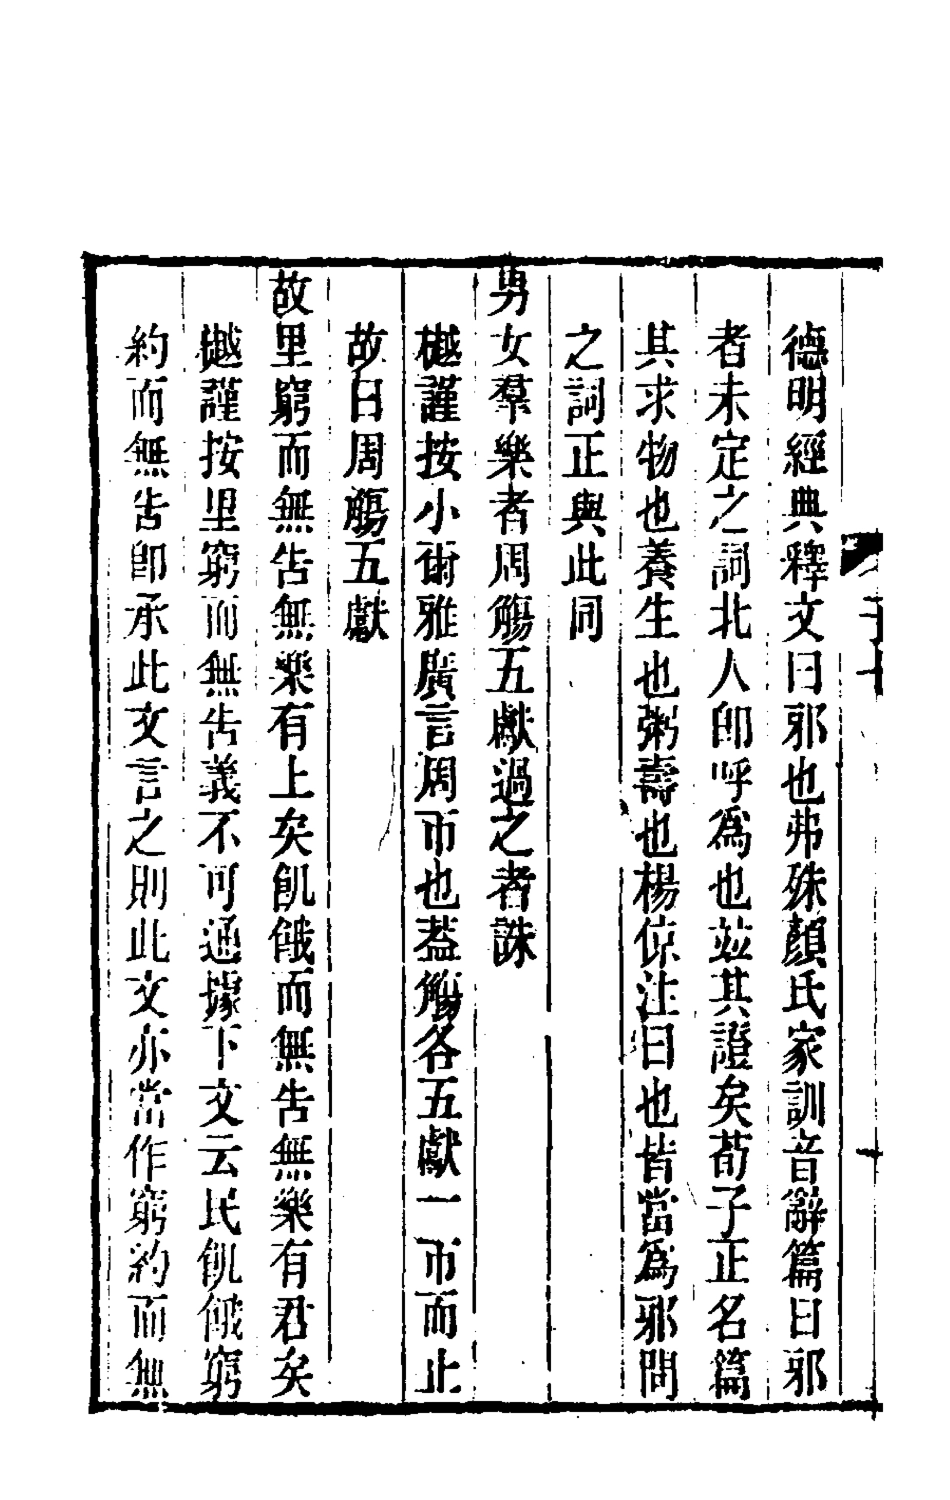 德明經典釋文曰邪也弗殊顏氏家訓音辭篇曰邪
者未定之詞北人卽呼爲也竝其證矣荀子正名篇
其求物也養生也粥壽也楊倞注曰也皆當爲邪問
之詞正與此同
男女羣樂者周觴五獻過之者誅
樾謹按小爾雅廣言周帀也葢觴各五獻一帀而止
故曰周觴五獻
故里窮而無告無樂有上矣飢餓而無告無樂有君矣
樾謹按里窮而無告義不可通據下文云民飢餓窮
約而無告卽承此文言之則此文亦當作窮約而無